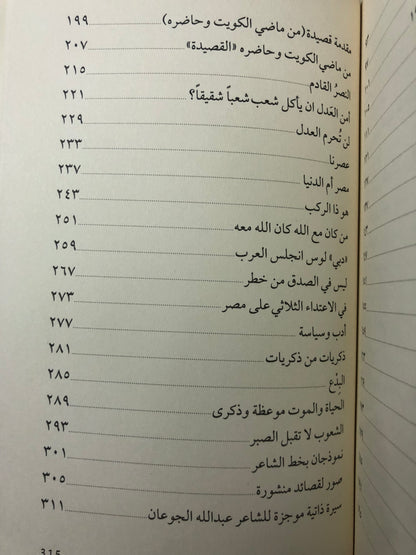 مقدمة قصيدة (من ماضي الكويت وحاضره) ١٩٩
من ماضي الكويت وحاضره «القصيدة» ٢٠٧
النصرُ القادم ٢١٥
أمن العَدل ان يأكل شعب شعباً شقيقاً؟ ٢٢١
لن تُحرم العدل ٢٢٩
عصرنا ٢٣٣
مصر أم الدنيا ٢٣٧
هو ذا الركب ٢٤٣
من كان مع الله كان الله معه ٢٥١
«دبي» لوس انجلس العرب ٢٥٩
ليس في الصدق من خطر ٢٦٧
في الاعتداء الثلاثي على مصر ٢٧٣
أدب وسياسة ٢٧٧
ذكريات من ذكريات ٢٨١
البِدْع ٢٨٥
الحياة والموت موعظة وذكرى ٢٨٩
الشعوب لا تقبل الصبر ٢٩٣
نموذجان بخط الشاعر ٣٠١
صور لقصائد منشورة ٣٠٥
سيرة ذاتية موجزة للشاعر عبدالله الجوعان ٣١١